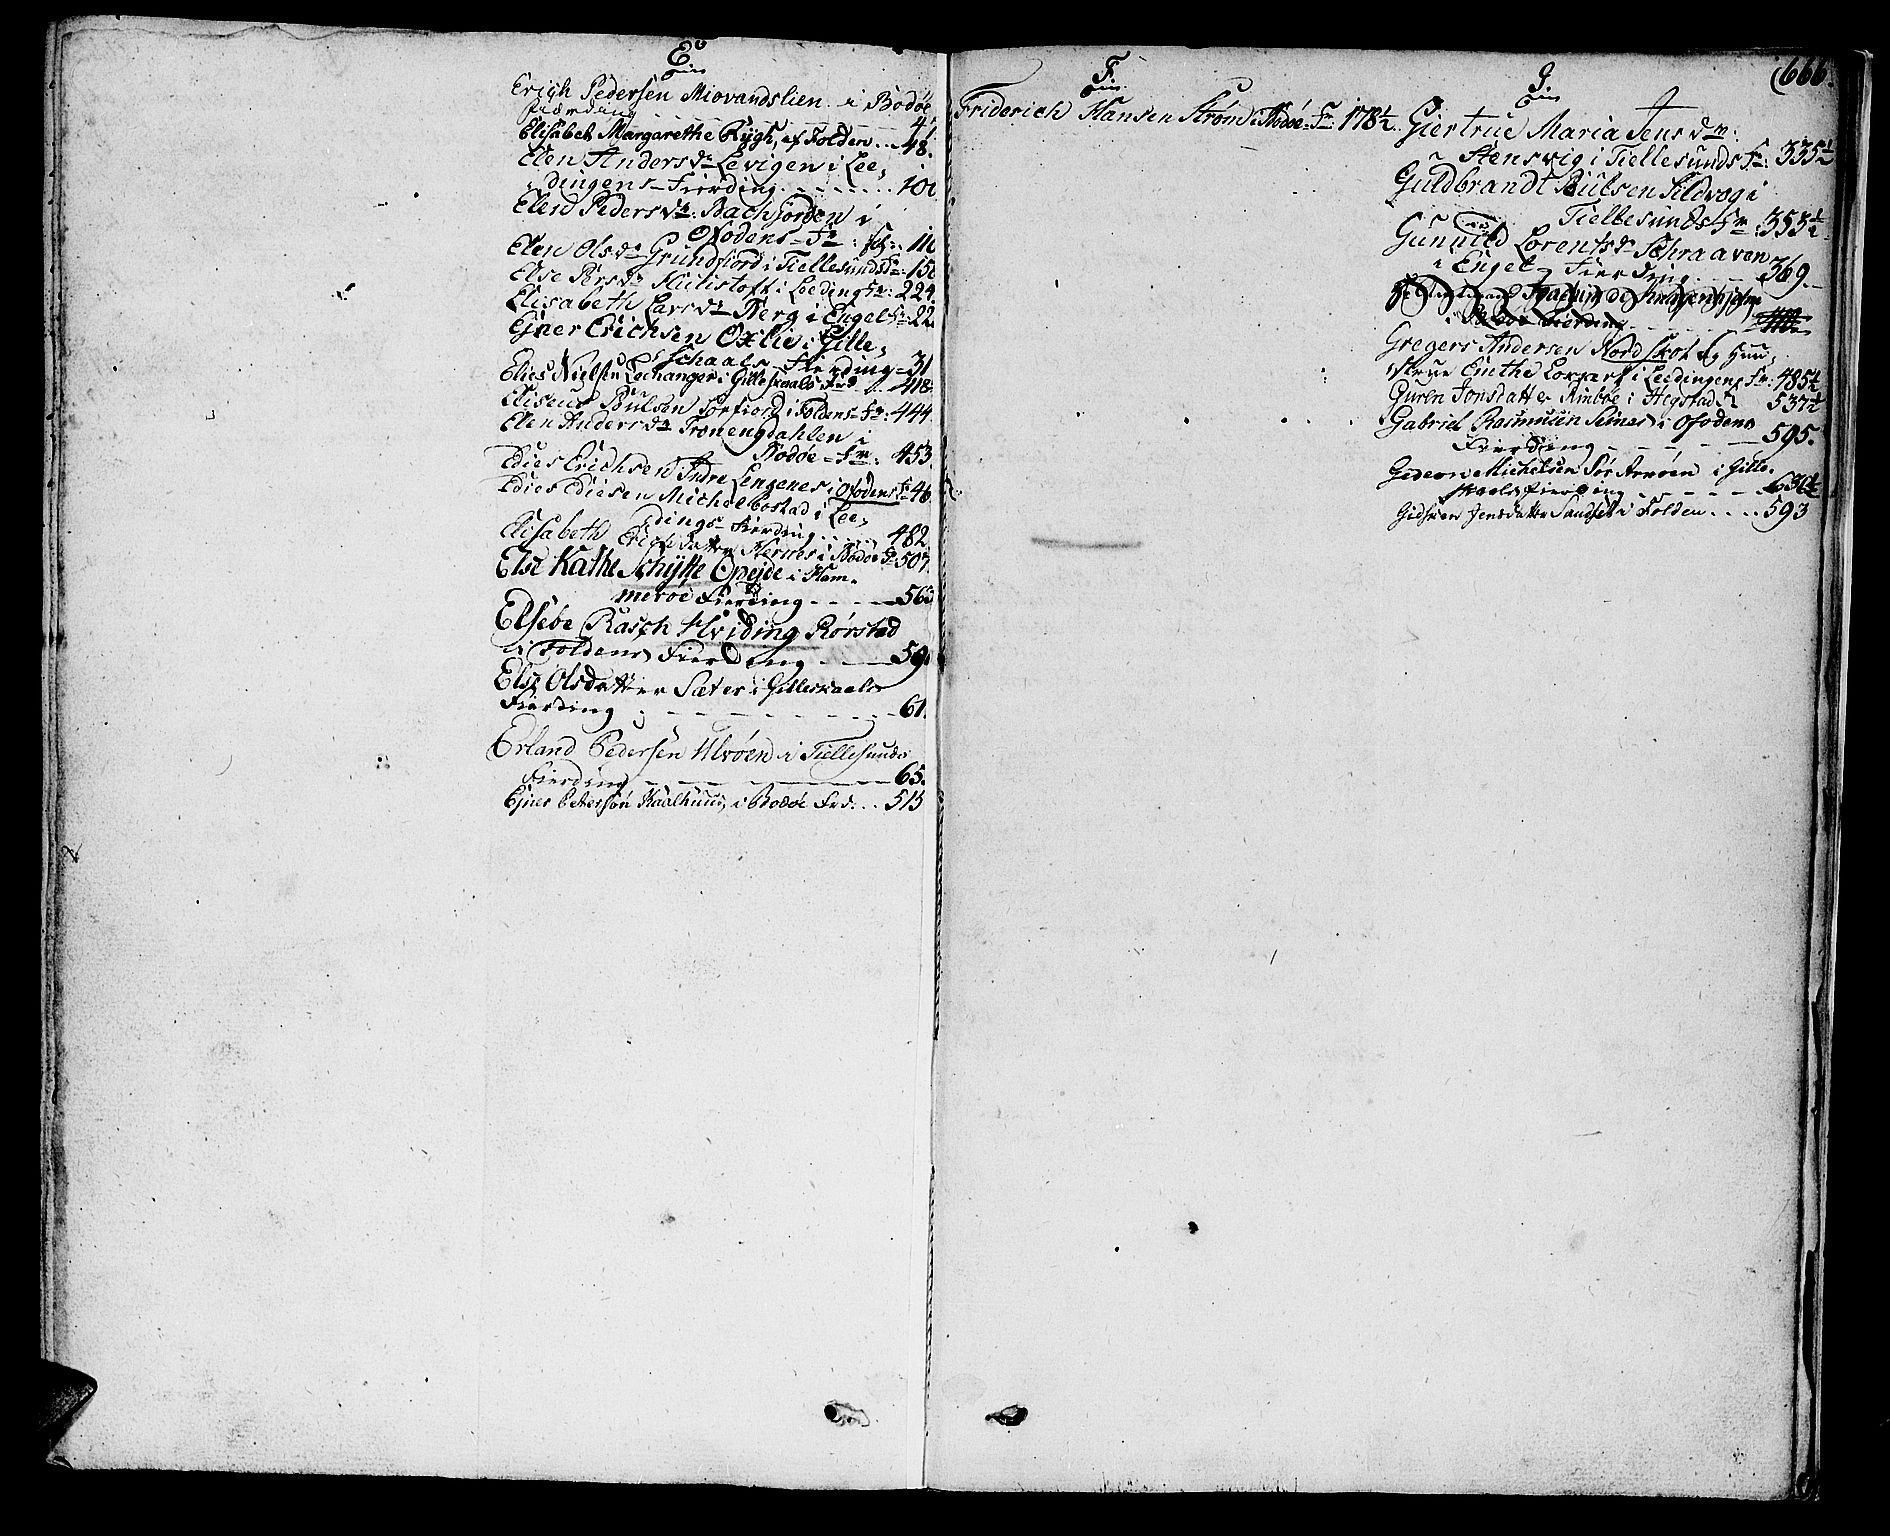 E
Erich Pedersen Miovandslien i Bodøe
Fiærding 4
Elisabet Margarethe Rygh, af Folden 48.
Elen Andersdr Levigen i Lee,
dingens Fierding 10
Elen Pedersdr: Bachjorden i
Ofodens Fr: 11
Elen Olsdr Grundfiord i Tiellesunds Fr: 15
Else Persdr Hulstoft i Leeding Fr: 224.
Elisabeth Larsdr Berg i Engel Fr: 22
Ejner Erichsen Oxlie i Gille,
schaals Fierding 31
Elies Nielsen Lechanger i Gilleskaals Fird 418.
Eliseus Pulsen Sorfiord i Foldens Fr: 444.
Elen Andersdr Trænengdahlen i
Bodøe Fr: 453.
Edies Erichsen Indre Lengenes i Ofodens Fr 46
Edies Ediesen Michelbostad i Lee,
dings Fierding 482.
Elisabeth Erichsdatter Hernes i Bodøe Fr 507.
Else Kathe Schytte Opejde i Ham,
meroe Fierding 565
Elsebe Rasch Hviding Rørstad
i Foldens Fierding 59
Else Olsdatter Sæter i Gilleskaals
Fierding 61.
Erland Pedersen Ulvøen i Tiellesunds
Fierding 65.
Ejner Petersøn Kaalhuus, i Bodøe Frd: 515
F.
Friderich Hansen Strøm i Bodøe Fr: 178½
G
(666.
Giertrue Maria Jensdr:
Stensvig i Tiellesunds Fr: 335½
Guldbrandt Pulsen Sildvog i
Tiellesunds Fr: 353½
Gunnild Lorentsdr Schraaven
i Engel Fierding 369.
i Bodøe Fierding
Gregers Andersen Nordskot og Huu,
strue Cinthe Coxvert i Leedingens Fr: 485½
Guren Jonsdatter Rinbøe i Hegstad 537½
Gabriel Rasmusen Simes i Ofodens
Fierding 595.
Gideon Michelsen Sør Arnøen i Gille,
skaals Fierding 630½
Gidsken Jensdatter Sandset i Folden 593